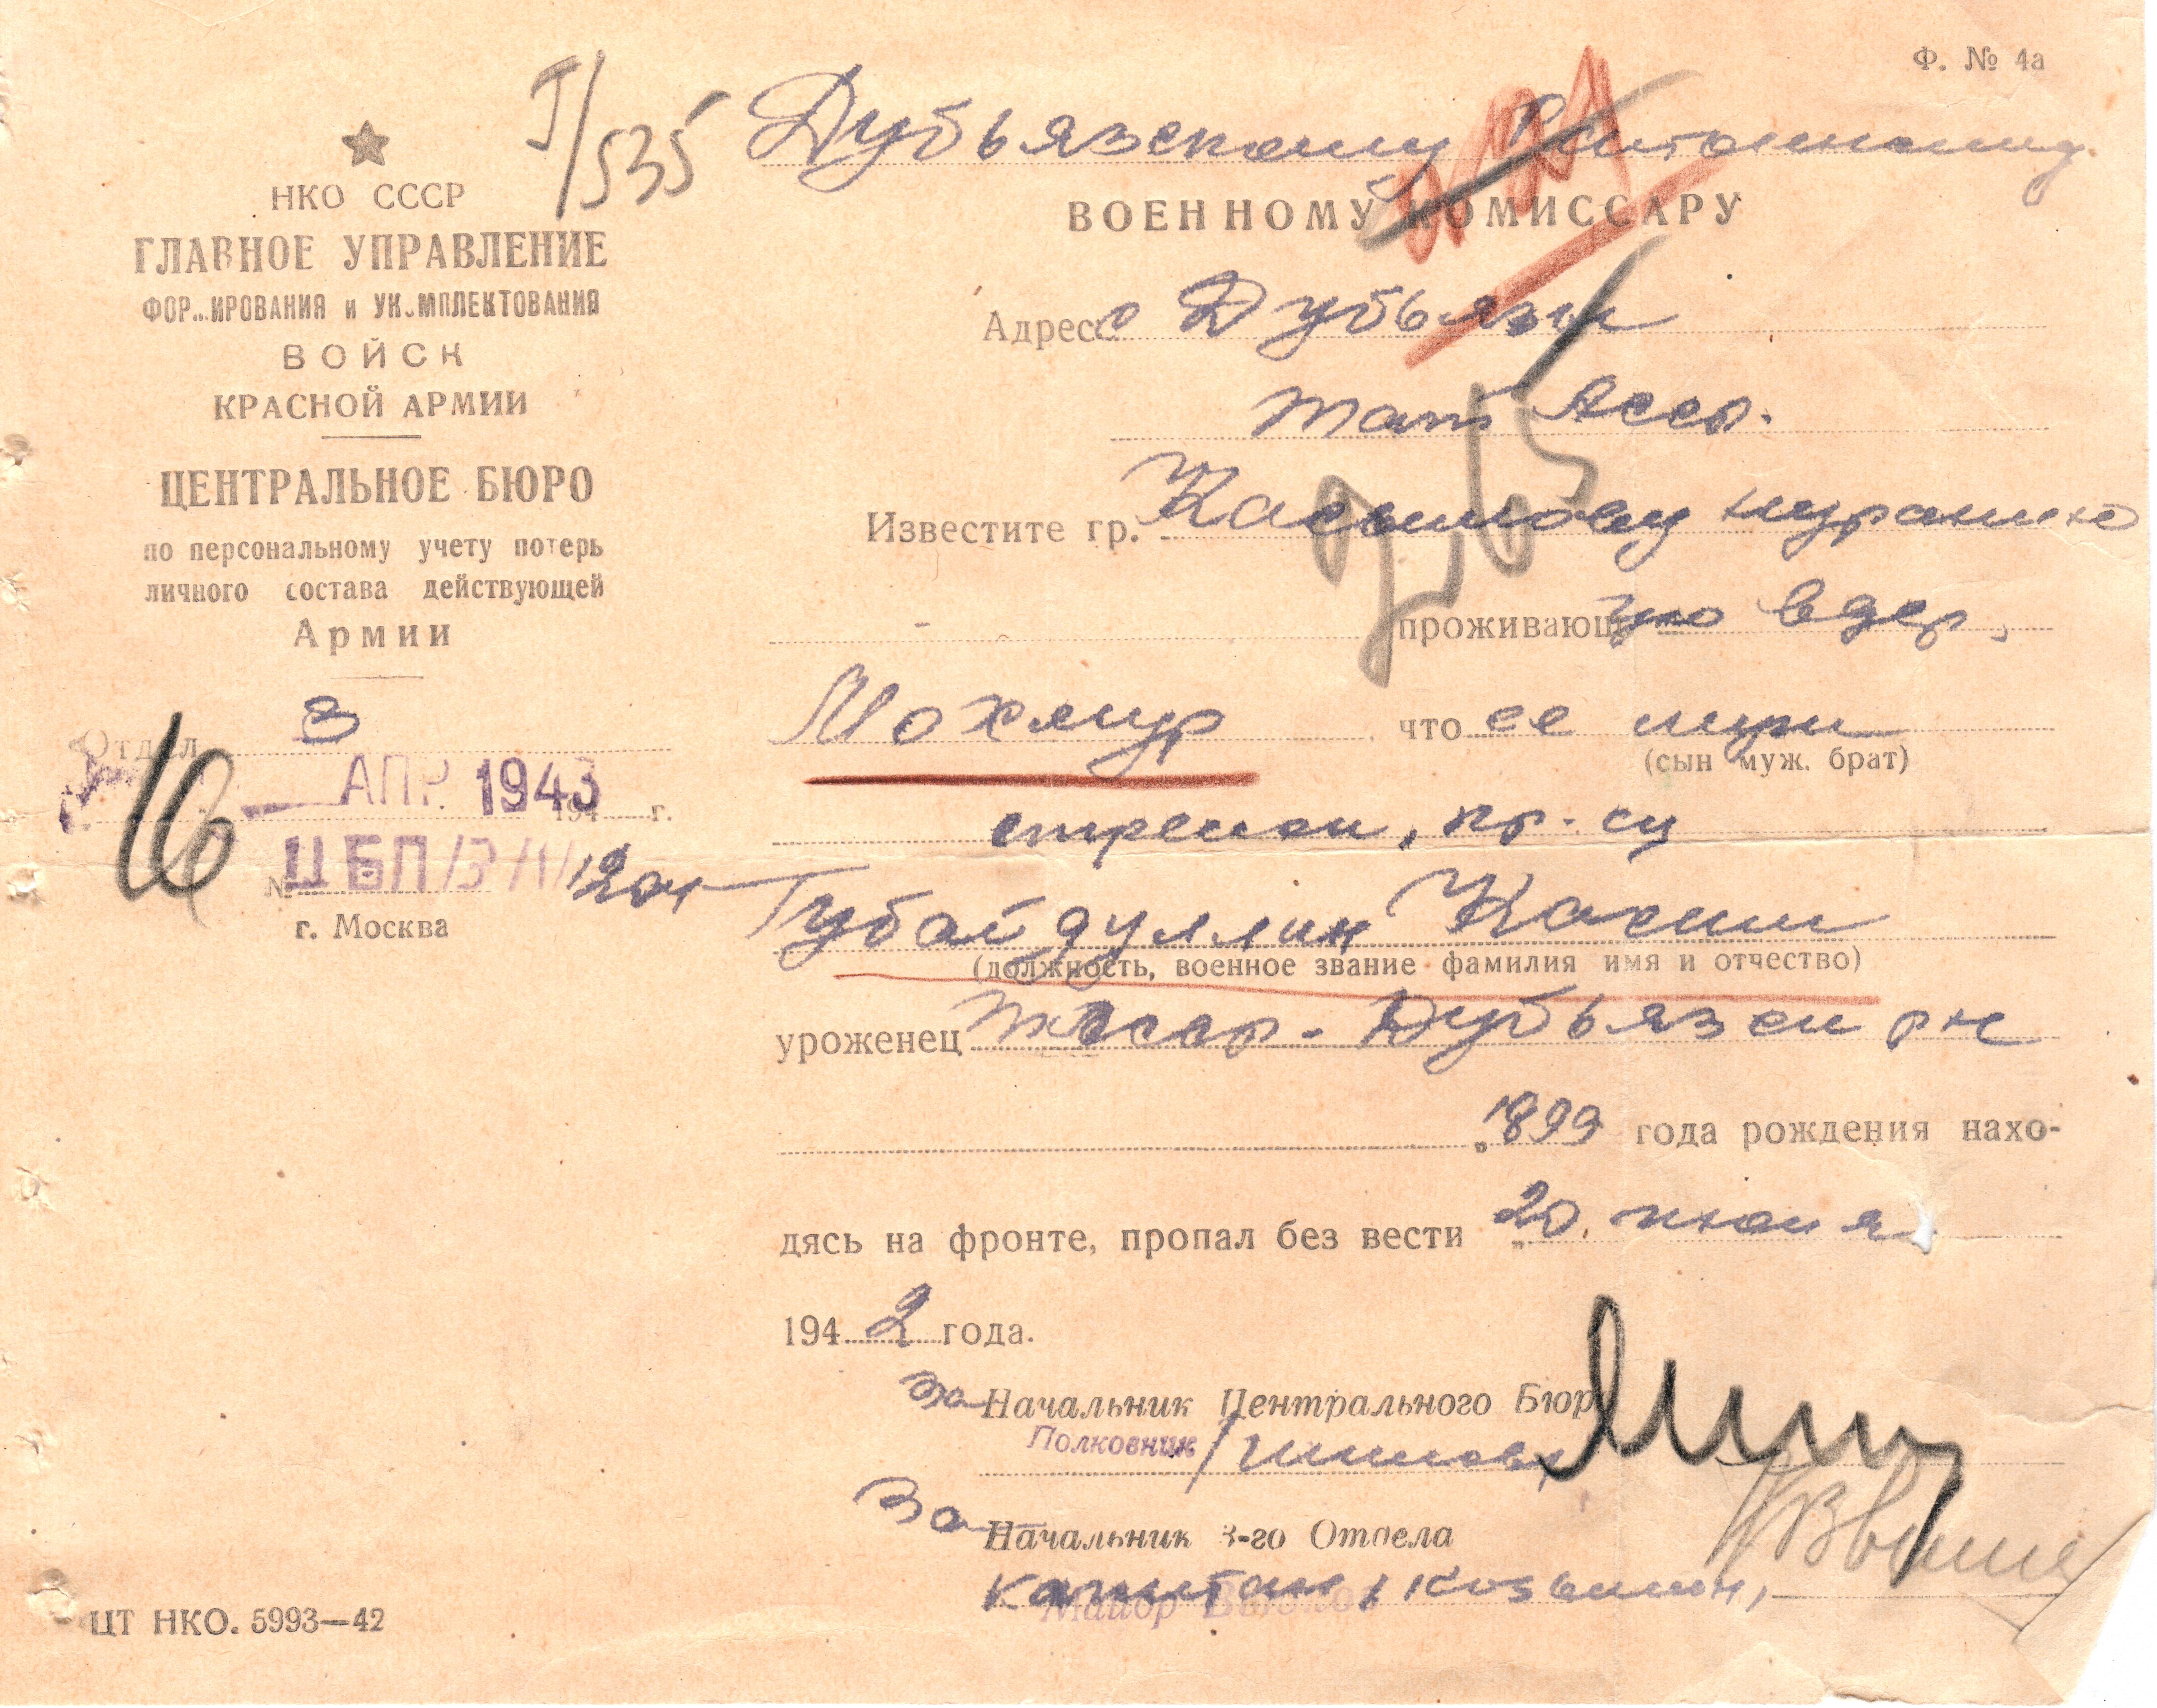 Ф. № 4а
I/535
Дубьязскому Районному
ВОЕННОМУ КОМИССАРУ
НКО СССР
ГЛАВНОЕ УПРАВЛЕНИЕ
ФОР..ИРОВАНИЯ и УК.МПЛЕКТОВАНИЯ
ВОЙСК
КРАСНОЙ АРМИИ
ЦЕНТРАЛЬНОЕ БЮРО
по персональному учету потерь
личного состава действующей
Армии
Отдел 3
АПР 1943
194 г.
16
№ ЦБП/3/1/1204
г. Москва
Адрес с Дубьязы
Тат Асср.
Известите гр. Касымову
проживающую в дер.
Мохямур что ее муж
(сын муж. брат)
стрелок, кр-ец
Губайдуллин Касим
(должность, военное звание фамилия имя и отчество)
уроженец ТАсср. Дубьязск рн
1899 года рождения нахо-
дясь на фронте, пропал без вести 20. июля
1942 года.
За Начальник Центрального Бюр
Полковник /Шилов/
За Начальник 3-го Отдела
капитан
Майор
ЦТ НКО. 5993—42